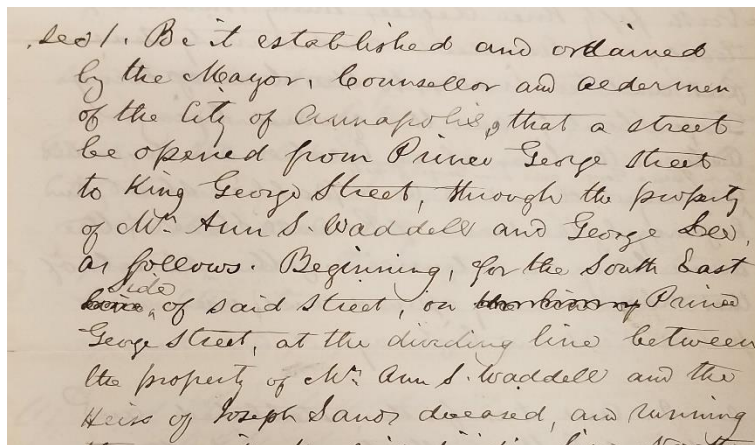 Sec 1. Be it established and ordained
by the Mayor, Counsellor and Aldermen
of the City of Annapolis, that a street
be opened from Prince George Street
to King George Street, through the property
of Mrs. Ann S. Waddell and George Lee,
as follows. Beginning, for the South East
Side
of said Street, on Prince
George Street, at the dividing line between
the property of Mrs. Ann S. Waddell and the
Heirs of Joseph Sands deceased, and running